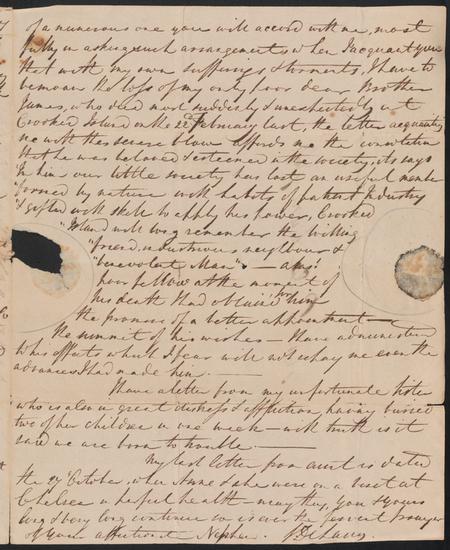 of a numerous one you will accord with me, most
fully in asking such arrangements when I acquaint you
that with my own sufferings & torments, I have to
bemoan the loss of my only poor dear Brother
James, who died most suddenly & unexpectedly at
Crooked Island on the 22d February last, the letter acquainting
me with this severe blow affords me the consolation
that he was beloved & esteemed in the society, its says
"In him our little society has lost an useful member
"formed by nature with habits of patient Industry
"& gifted with skill to apply his power, Crooked
"Island will long remember the willing
"friend, industrious neighbour &
"benevolent Man" — 
poor fellow at the moment of
his death I had obtain'd for him
the promise of a better appointment —
the summit of his wishes — I have administered
to his effects which I fear will not repay me even the
advances I had made him. —
I have a letter from my unfortunate sister
who is also in great distress & affliction having buried
two of her children in one week — with truth is it
said we are born to trouble. —
My last letter from aunt is dated
the 29 October, when Anne & she were on a visit at
Chelsea in perfect health — may they, you & yours
long & very long continue so is ever the fervent prayer
of your affectionate Nephew